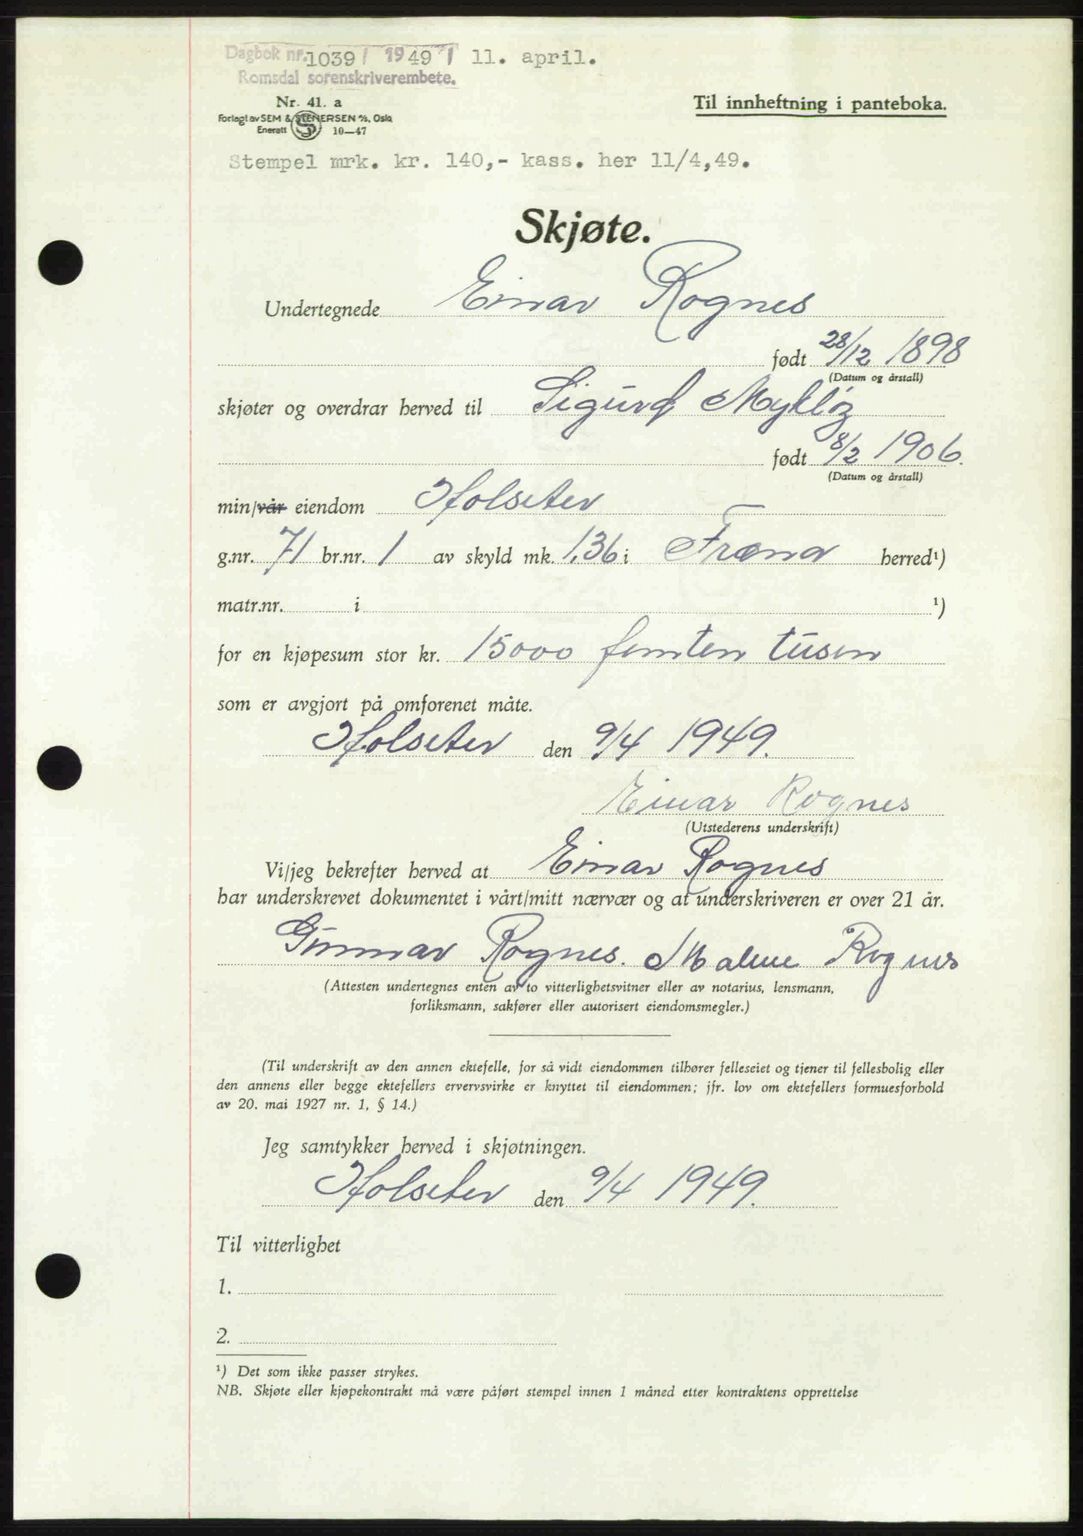 Dagbok nr. 1039 / 1949 11. april.
Romsdal sorenskriverembete.
Nr. 41. a
Til innheftning i panteboka.
Forlagt av SEM & STENERSEN A/S, Oslo
Enerett S 10—47
Stempel mrk. kr. 140,- kass. her 11/4,49.
Skjøte.
Undertegnede Einar Rognes
født 28/12 1898
(Datum og årstall)
skjøter og overdrar herved til Sigurd Mykløy
født 8/2 1906.
(Datum og årstall)
min/vår eiendom Holseter
g.nr. 71 br.nr. 1 av skyld mk. 1.36 i Fræna herred¹)
matr.nr. i ¹)
for en kjøpesum stor kr. 15000 femten tusen
som er avgjort på omforenet måte.
Holseter den 9/4 1949.
Einar Rognes
(Utstederens underskrift)
Vi/jeg bekrefter herved at Einar Rognes
har underskrevet dokumentet i vårt/mitt nærvær og at underskriveren er over 21 år.
Gunnar Rognes. Malene Rognes
(Attesten undertegnes enten av to vitterlighetsvitner eller av notarius, lensmann,
forliksmann, sakfører eller autorisert eiendomsmegler.)
(Til underskrift av den annen ektefelle, for så vidt eiendommen tilhører felleseiet og tjener til fellesbolig eller
den annens eller begge ektefellers ervervsvirke er knyttet til eiendommen; jfr. lov om ektefellers formuesforhold
av 20. mai 1927 nr. 1, § 14.)
Jeg samtykker herved i skjøtningen.
Holseter den 9/4 1949.
Til vitterlighet
1.
2.
¹) Det som ikke passer strykes.
NB. Skjøte eller kjøpekontrakt må være påført stempel innen 1 måned etter kontraktens opprettelse